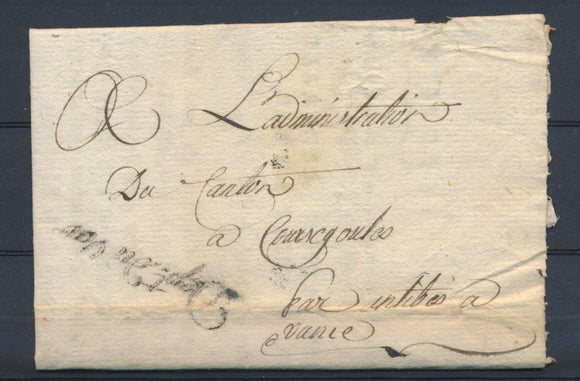 A L'administration
Du Canton
a Coursegoules
par antibes a
vance
Dept. du var